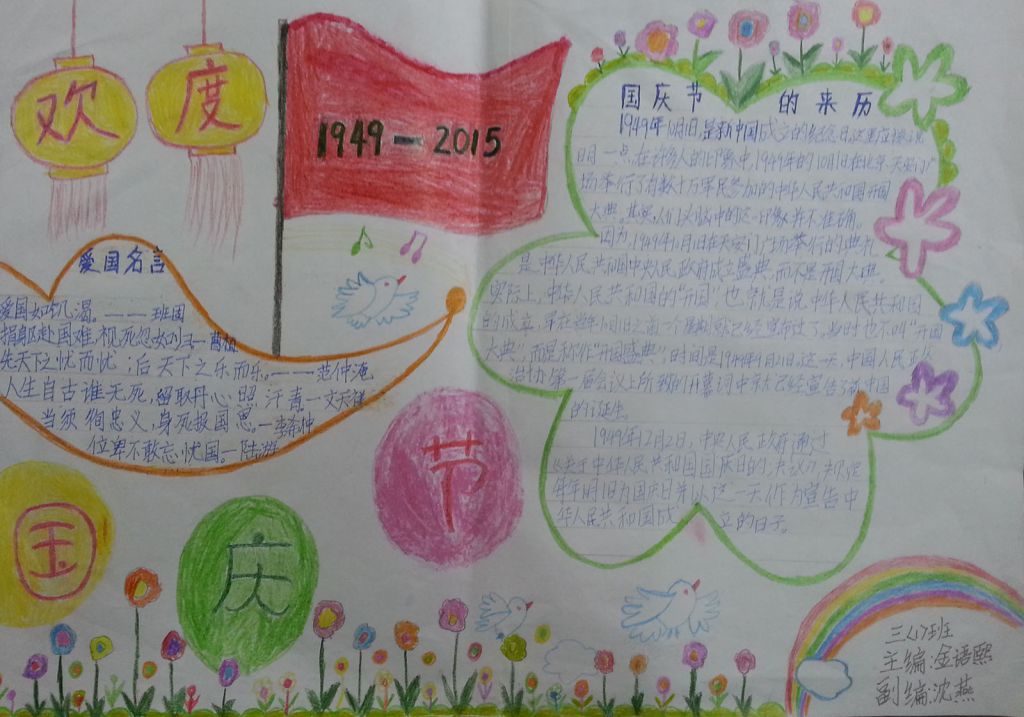 欢度
1949—2015
国庆节
爱国名言
爱国如饥渴。——班固
捐躯赴国难,视死忽如归—曹植
先天下之忧而忧;后天下之乐而乐。———范仲淹
人生自古谁无死,留取丹心照汗青—文天祥
当须徇忠义,身死报国恩—李希仲
位卑不敢忘忧国。—陆游
国庆节的来历
1949年10月1日,是新中国成立的纪念日。这里应该说
明一点,在许多人的印象中,1949年的10月1日在北京天安门广
场举行了有数十万军民参加的中华人民共和国开国
大典。其实,人们头脑中的这一印象并不准确。
因为,1949年10月1日在天安门广场举行的典礼
是中华人民共和国中央人民政府成立盛典,而不是开国大典。
实际上,中华人民共和国的"开国"也就是说中华人民共和国
的成立,早在当年10月1日之前一个星期就已经宣布过了。当时也不叫"开国
大典",而是称作"开国盛典"。时间是1949年9月21日。这一天,中国人民政
治协第一届会议上所致的开幕词中就已经宣告了新中国
的诞生。
1949年12月2日,中央人民政府通过
《关于中华人民共和国国庆日的决议》,规定
每年10月1日为国庆日,并以这一天作为宣告中
华人民共和国成立的日子。
三(7)班
主编:金语熙
副编:沈燕